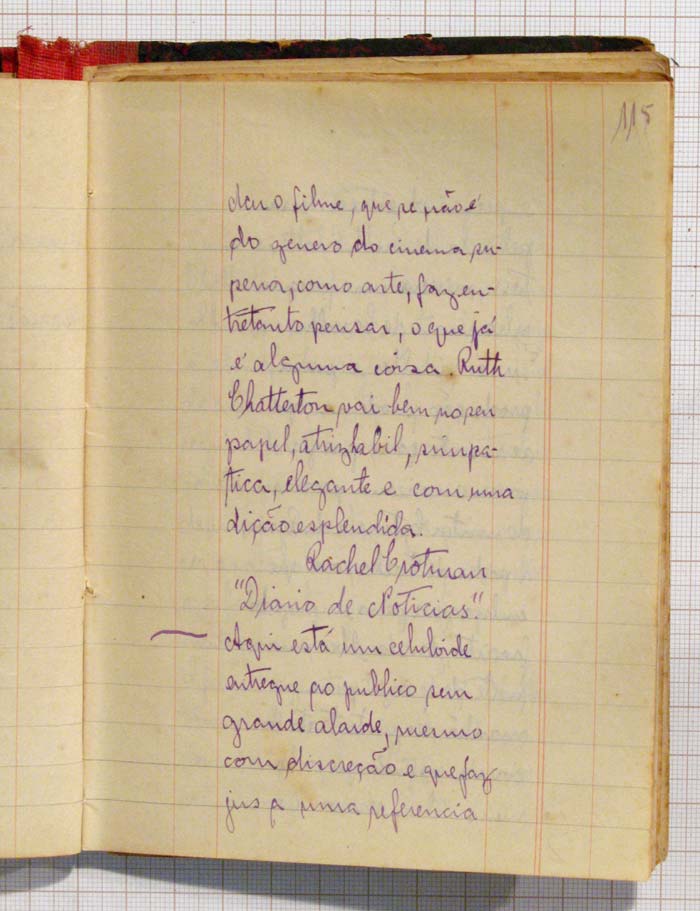 115
deu o filme, que se não é
do genero do cinema su-
perior, como arte, faz en-
tretanto pensar, o que já
é alguma coisa. Ruth
Chatterton vai bem no seu
papel, atriz habil, simpa-
tica, elegante e com uma
dição esplendida.
Rachel Crotman
"Diario de Noticias".
Aqui está um celuloide
entregue ao publico sem
grande alarde, mesmo
com discreção e que faz
jus a uma referencia